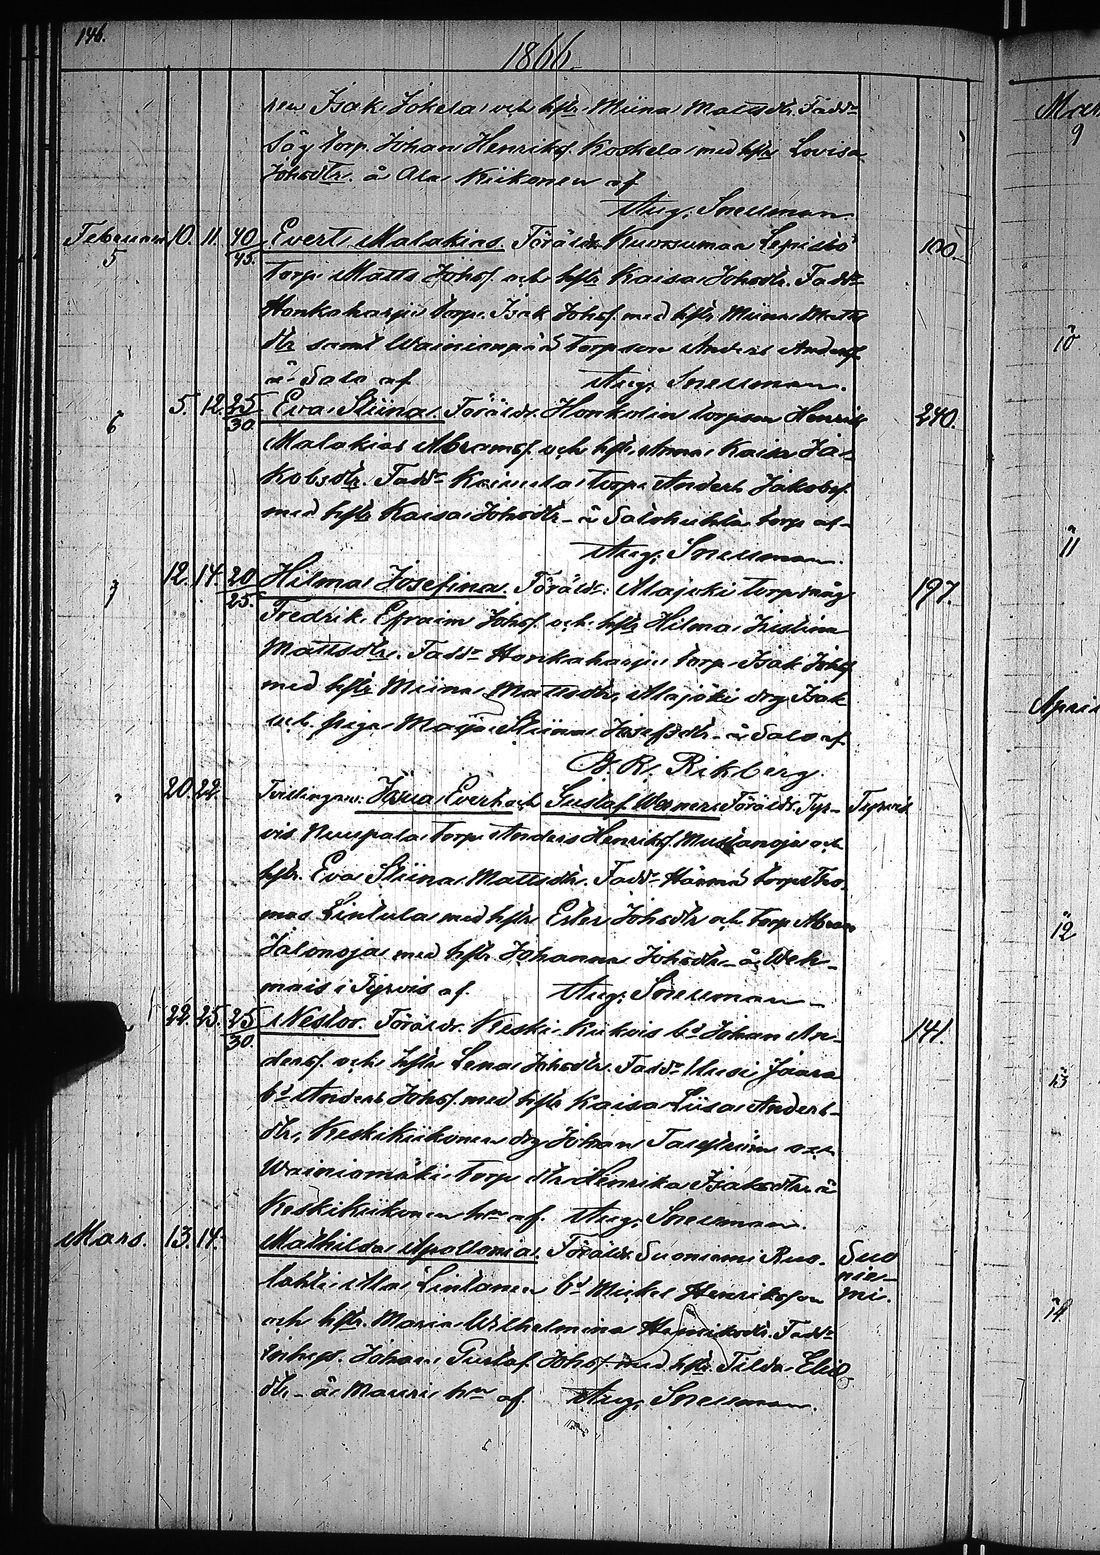 146.
1866
Isak Jokela och hstr. Miina Mattsdtr. Fadd
torp. Johan Henriksf. Koskela med hstr Lovisa
Johsdtr. å Ala Kiikonen af
Aug. Snellman
Februari 10. 11. 40/45. Evert Malakias. Föräldr. Lepistö 100.
5
torp. Matts Johsf. och hstr Kaisa Johsdtr. Fadd
Honkaharju torp. Isak Johsf. med hstr Miina Matts
dtr samt Wainionpää torp son Anders Andersf.
å Salo af Aug. Snellman.
6 5. 12. 25/30. Eva Stiina. Föräldr. Honkolin torpson Henrik 240.
Malakias Abramsf. och hstr. Anna Kaisa Ja-
kobsdtr. Fadd torp. Anders Jakobsf.
med hstr Kaisa Johsdtr - å torp af
Aug. Snellman.
7 12. 14. 20/25. Hilma Josefina. Föräldr: Alajoki torp måg 197.
Fredrik Efraim Johsf. och hstr Hilma Kristina
Mattsdtr. Fadd Honkaharju torp. Isak Johsf
med hstr Miina Mattsdtr, Alajoki drg Isak
och piga Maija Stiina Josefsdtr - å Salo af
Rikberg.
20. 22. Tvillingarne: Evert och Gustaf Werner. Föräldr. Tyr- Tyrvis
vis Nuupala torp. Anders Henriksf. Mustanoja och
hstr. Eva Stiina Mattsdtr. Fadd torp. Tho-
mas Lintula med hstr Ester Johsdtr och torp. Abram
Jalonoja med hstr Johanna Johsdtr - å Weh-
mais i Tyrvis af. Aug. Snellman -
22. 25. 25/30. Nestor. Föräldr. Keski Kiikois bd Johan An- 141.
dersf. och hstr Lena Johsdtr. Fadd Uusi Jaara
bd Anders Johsf. med hstr Kaisa Liisa Anders-
dtr, Keskikiikonen drg Johan och
Wainiomäki torp. dtr Henrika Isaksdtr. å
Keskikiikonen hn af. Aug. Snellman.
Mars. 13. 14. Mathilda Apollonia. Föräldr Suoniemi Kuo- Suo
nie-
mi.
lahti Ala Lintanen bd Mickel Henriksson
och hstr. Maria Wilhelmina Henriksdtr. Fadd
Johan Gustaf Johsf. med hstr. Tilda
dtr - å Mauri hn af. Aug. Snellman.
Mar
9
10
11
April
12
13
14